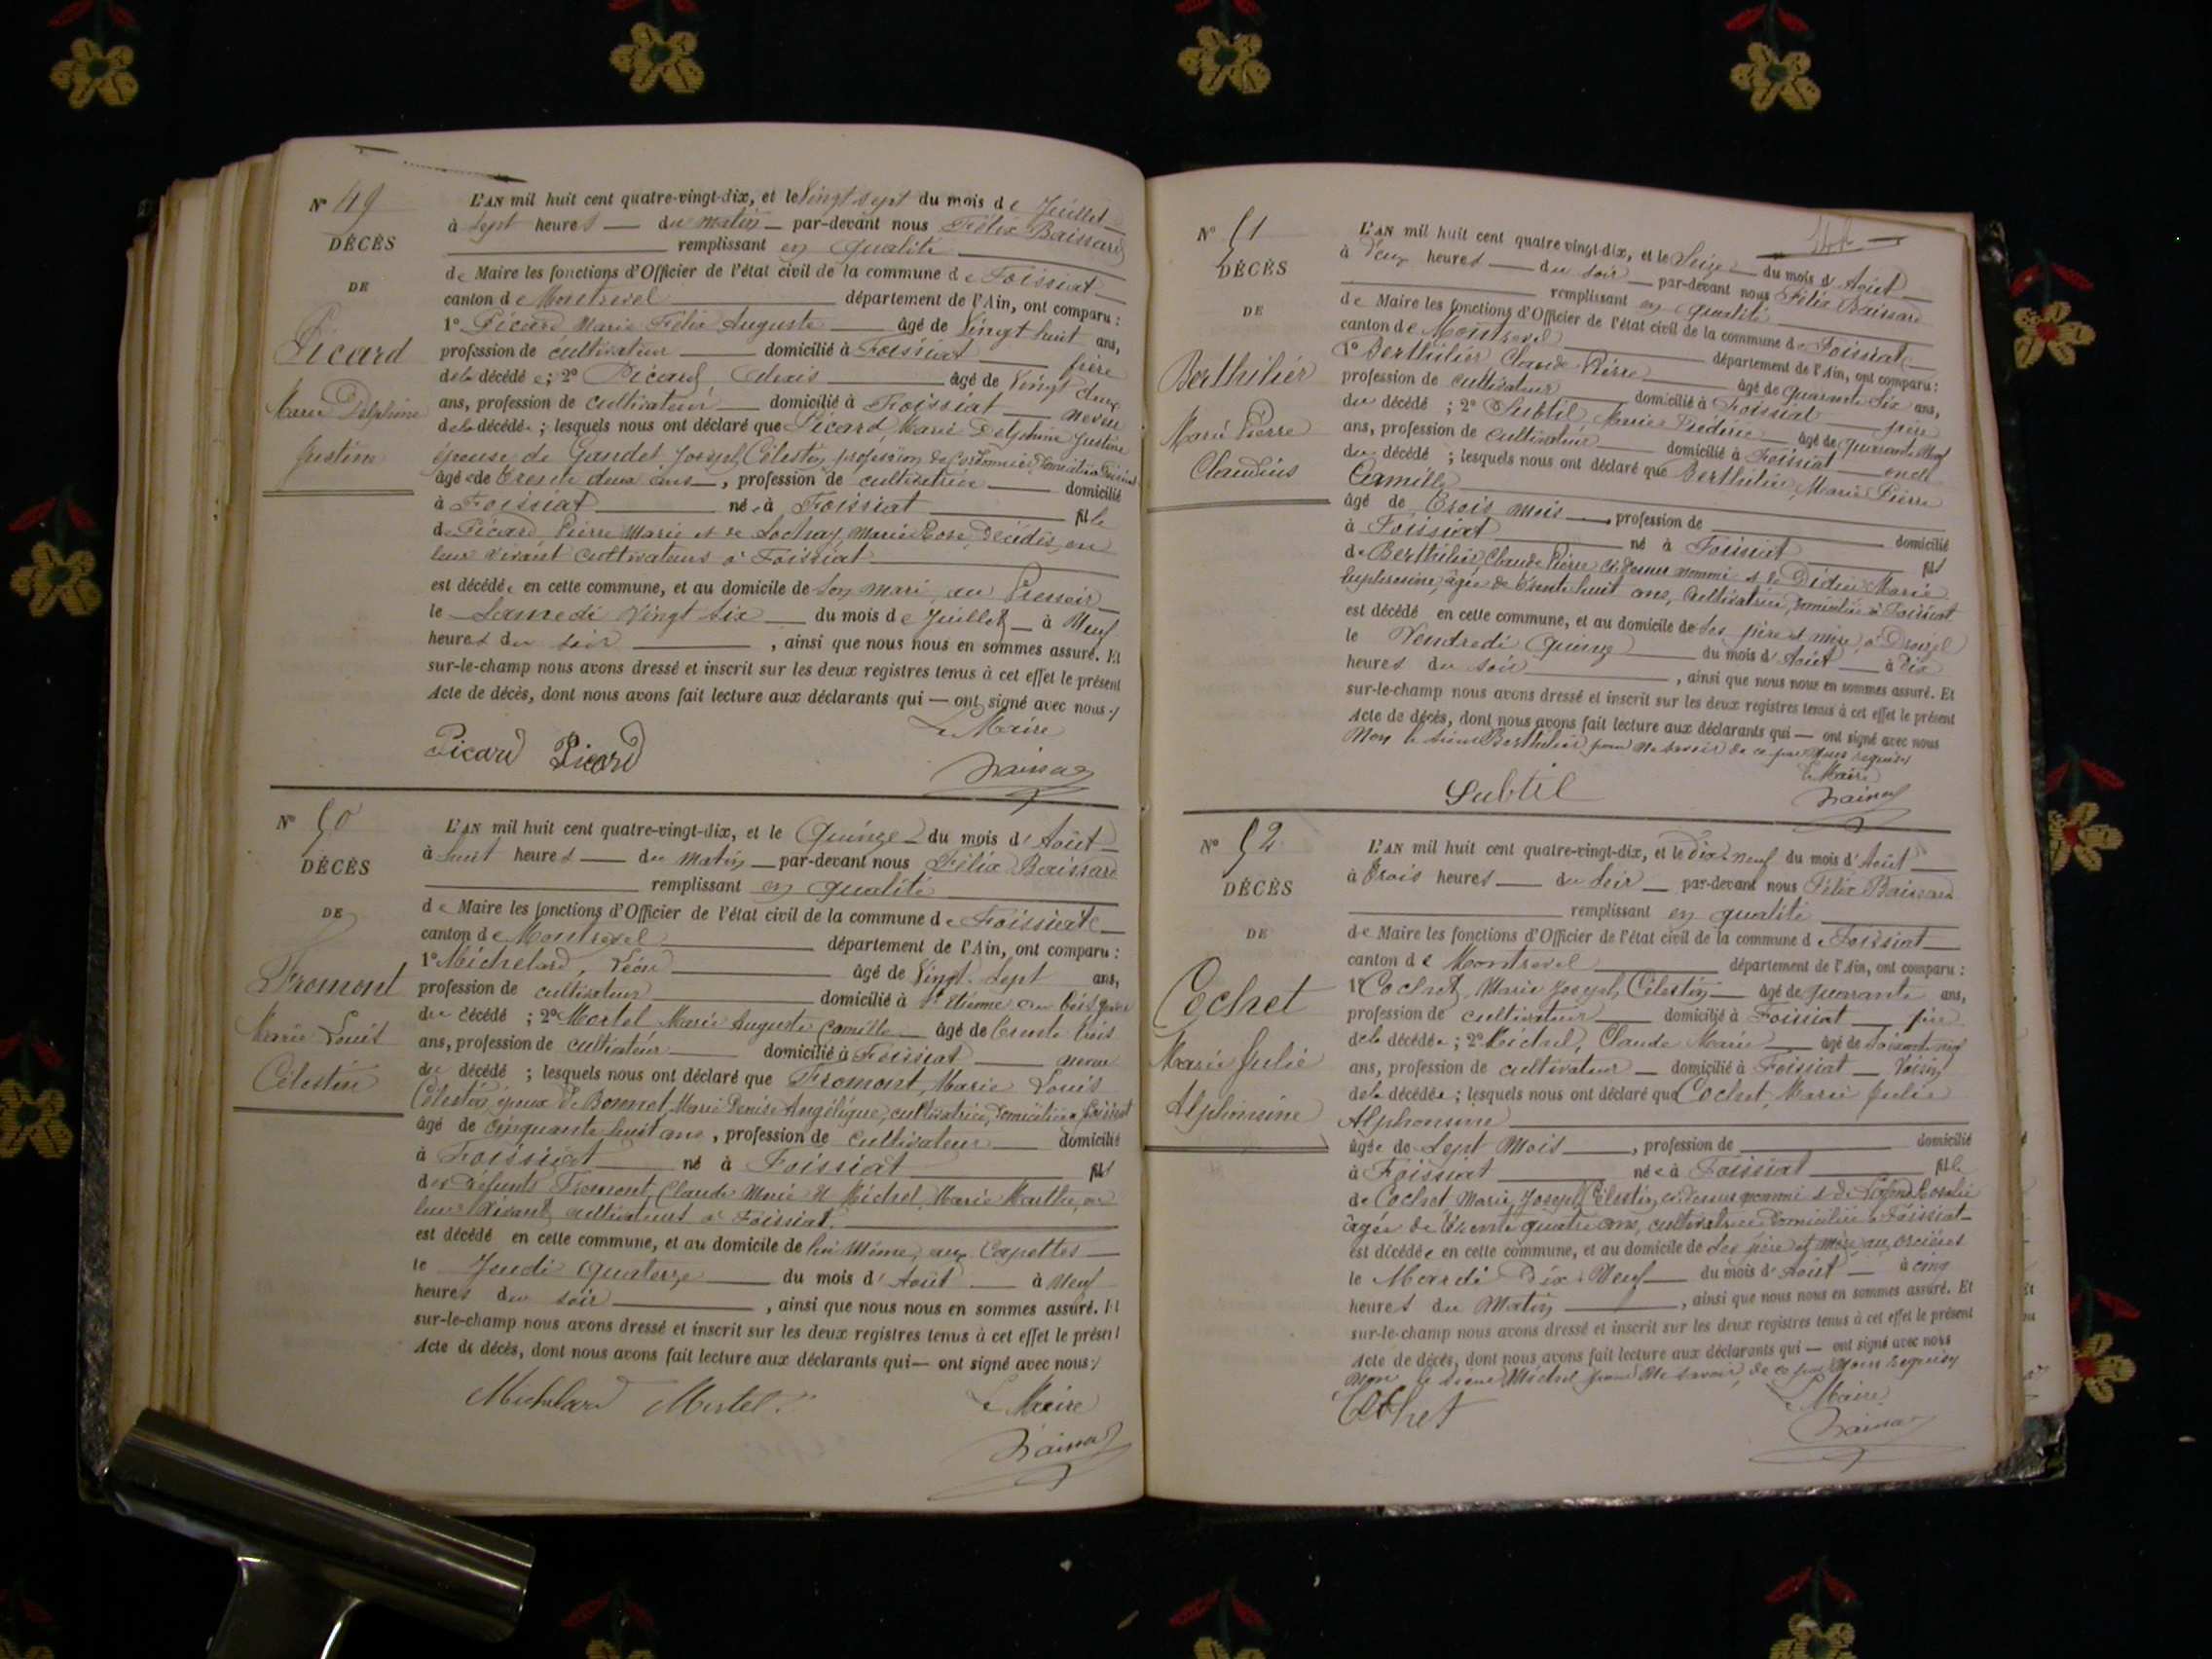 N° 49
DÉCÈS
DE
Picard
Marie Delphine
Justine
L'AN mil huit cent quatre-vingt-dix, et le Vingt sept du mois de Juillet
à Sept heures du matin par-devant nous Félix Baissard
remplissant en qualité
de Maire les fonctions d'Officier de l'état civil de la commune de Foissiat
canton de Montrevel département de l'Ain, ont comparu :
1° Picard Marie Félix Auguste âgé de Vingt huit ans,
profession de cultivateur domicilié à Foissiat frère
de la décédée ; 2° Picard, Alexis âgé de Vingt deux
ans, profession de cultivateur domicilié à Foissiat neveu
de la décédée ; lesquels nous ont déclaré que Picard, Marie Delphine Justine
épouse de Gandet Joseph Célestin profession de Cordonnier, domicilié à Foissiat
âgée de trente deux ans, profession de cultivatrice domicilié
à Foissiat née à Foissiat fille
de Picard Pierre Marie et de Marie Rose, décédés, en
leur vivant cultivateurs à Foissiat
est décédée en cette commune, et au domicile de son mari, au Pressoir
le Samedi Vingt six du mois de Juillet à Neuf
heures du soir , ainsi que nous nous en sommes assuré. Et
sur-le-champ nous avons dressé et inscrit sur les deux registres tenus à cet effet le présent
Acte de décès, dont nous avons fait lecture aux déclarants qui — ont signé avec nous
Le Maire
Picard Picard
Baissard
N° 50
DÉCÈS
DE
Fromont
Marie Louis
Célestin
L'AN mil huit cent quatre-vingt-dix, et le Quinze du mois d'Août
à huit heures du matin par-devant nous Félix Baissard
remplissant en qualité
de Maire les fonctions d'Officier de l'état civil de la commune de Foissiat
canton de Montrevel département de l'Ain, ont comparu :
1° Michelard, Léon âgé de Vingt-sept ans,
profession de cultivateur domicilié à St Etienne du bois
du décédé ; 2° Mortel Marie Auguste Camille âgé de trente trois
ans, profession de cultivateur domicilié à Foissiat neveu
du décédé ; lesquels nous ont déclaré que Fromont, Marie Louis
Célestin époux de Bonnet, Marie Denise Angélique, cultivatrice, domiciliée à Foissiat
âgé de cinquante huit ans, profession de cultivateur domicilié
à Foissiat né à Foissiat fils
des défunts Fromont, Claude Marie et Michel, Marie Marthe, en
leur vivant cultivateurs à Foissiat.
est décédé en cette commune, et au domicile de lui même, aux Capettes
le Jeudi Quatorze du mois d'Août à Neuf
heures du soir , ainsi que nous nous en sommes assuré. Et
sur-le-champ nous avons dressé et inscrit sur les deux registres tenus à cet effet le présent
Acte de décès, dont nous avons fait lecture aux déclarants qui — ont signé avec nous
Michelard Mortel
Le Maire
Baissard
N° 51
DÉCÈS
DE
Berthilier
Marie Pierre
Claudius
L'AN mil huit cent quatre-vingt-dix, et le Seize du mois d'Août
à Deux heures du soir par-devant nous Félix Baissard
remplissant en qualité
de Maire les fonctions d'Officier de l'état civil de la commune de Foissiat
canton de Montrevel département de l'Ain, ont comparu :
1° Berthilier Claude Pierre âgé de Quarante six ans,
profession de cultivateur domicilié à Foissiat père
du décédé ; 2° Subtil, Marie Frédéric âgé de quarante neuf
ans, profession de cultivateur domicilié à Foissiat oncle
du décédé ; lesquels nous ont déclaré que Berthilier, Marie Pierre
Camille
âgé de Trois mois profession de domicilié
à Foissiat né à Foissiat fils
de Berthilier Claude Pierre ci dessus nommé et de Marie
Euphrosine, âgée de trente huit ans, cultivatrice, domiciliée à Foissiat
est décédé en cette commune, et au domicile de ses père et mère, à
le Vendredi Quinze du mois d'Août à dix
heures du soir , ainsi que nous nous en sommes assuré. Et
sur-le-champ nous avons dressé et inscrit sur les deux registres tenus à cet effet le présent
Acte de décès, dont nous avons fait lecture aux déclarants qui — ont signé avec nous
Non le sieur Berthilier pour ne savoir de ce par nous requis
Le Maire
Subtil
Baissard
N° 52
DÉCÈS
DE
Cochet
Marie Julie
Alphonsine
L'AN mil huit cent quatre-vingt-dix, et le dix-neuf du mois d'Août
à Trois heures du soir par-devant nous Félix Baissard
remplissant en qualité
de Maire les fonctions d'Officier de l'état civil de la commune de Foissiat
canton de Montrevel département de l'Ain, ont comparu :
1° Cochet, Marie Joseph Célestin âgé de quarante ans,
profession de cultivateur domicilié à Foissiat père
de la décédée ; 2° Michel, Claude Marie âgé de
ans, profession de cultivateur domicilié à Foissiat Voisin
de la décédée ; lesquels nous ont déclaré que Cochet, Marie Julie
Alphonsine
âgée de Sept Mois , profession de domicilié
à Foissiat née à Foissiat fille
de Cochet Marie Joseph Célestin, ci dessus nommé et de Rosalie
âgée de trente quatre ans, cultivatrice domiciliée à Foissiat
est décédée en cette commune, et au domicile de ses père et mère aux
le Mardi Dix-Neuf du mois d'Août à cinq
heures du Matin , ainsi que nous nous en sommes assuré. Et
sur-le-champ nous avons dressé et inscrit sur les deux registres tenus à cet effet le présent
Acte de décès, dont nous avons fait lecture aux déclarants qui — ont signé avec nous
Non le sieur Michel pour ne savoir, de ce par nous requis
Cochet
Le Maire
Baissard